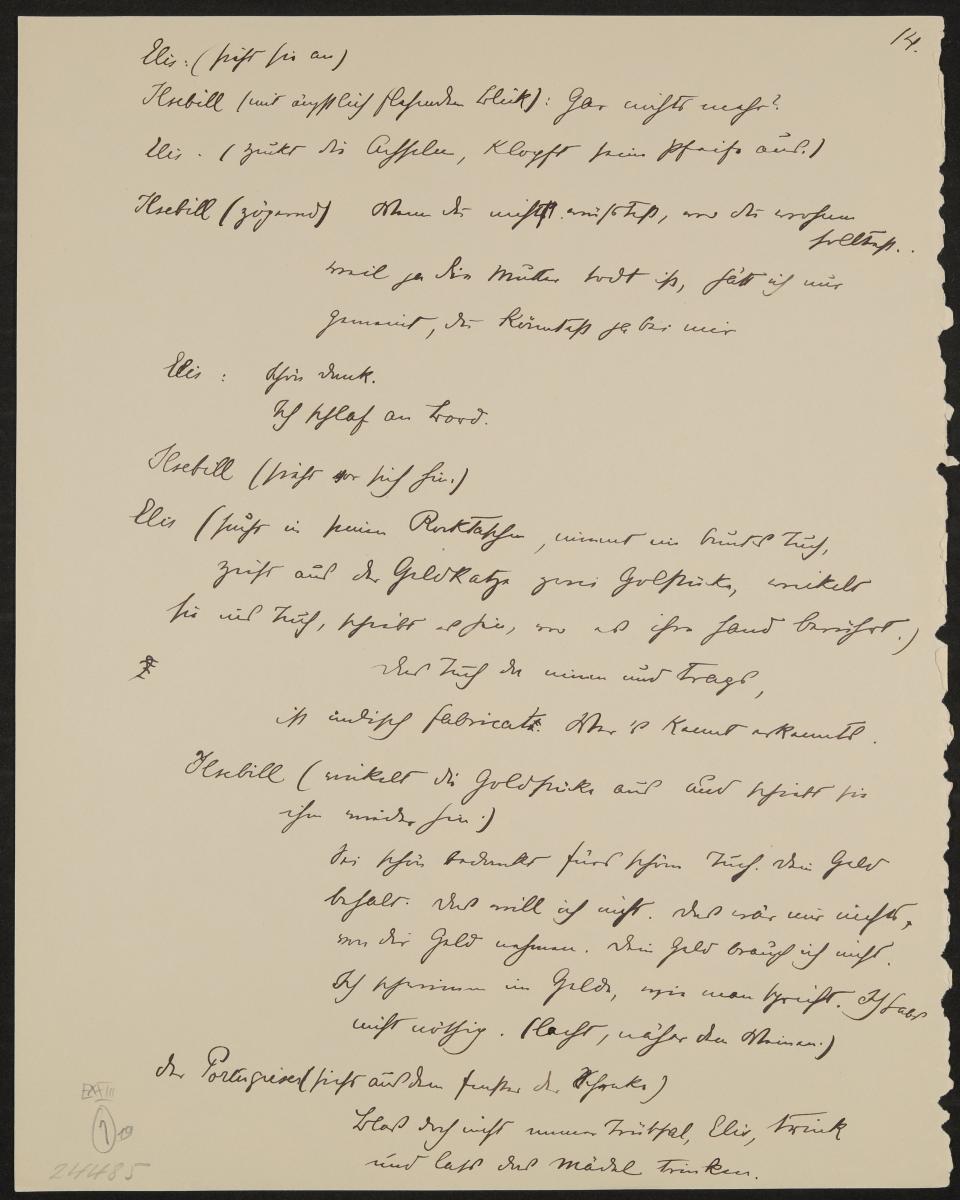 14.
Elis: (sieht sie an)
Ilsebill (mit ängstlich flehenden Blick): Gar nichts mehr?
Elis. (zuckt die Achseln, klopft seine Pfeife aus.)
Ilsebill (zögernd) Wenn du nicht wüsstest, wo du wohnen
solltest..
weil ja die Mutter todt ist, hätt ich nur
gemeint, du könntest ja bei mir
Elis: Schön dank.
Ich schlaf an Bord.
Ilsebill (sieht vor sich hin.)
Elis (sucht in seinen Rocktaschen, nimmt ein buntes Tuch,
zieht aus der Geldkatze zwei Golstücke, wickelt
sie ins Tuch, schiebt es hin, wo es ihre Hand berührt.)
Das Tuch da nimm und trags,
ist indisch fabricat. Wer's kennt erkennts.
Ilsebill (wickelt die Goldstücke aus und schiebt sie
ihm wieder hin.)
Sei schön bedankt fürs schöne Tuch. Dein Geld
behalt. Das will ich nicht. Das wär mir nichts,
von dir Geld nehmen. Dein Geld brauch ich nicht.
Ich schwimm im Gelde, wie man spricht. Ich habs
nicht nöthig. (lacht, näher dem Weinen.)
der Portugiese (sieht aus dem Fenster der Schenke)
Blas doch nicht immer Trübsal, Elis, trink
und lass das Mädel trinken.
24485